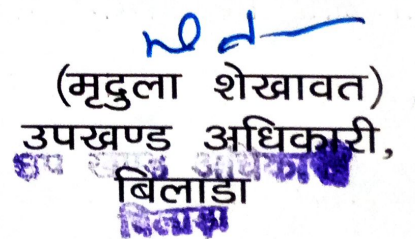 (मृदुला शेखावत)
उपखण्ड अधिकारी,
उप खण्ड अधिकारी
बिलाडा
बिलाड़ा